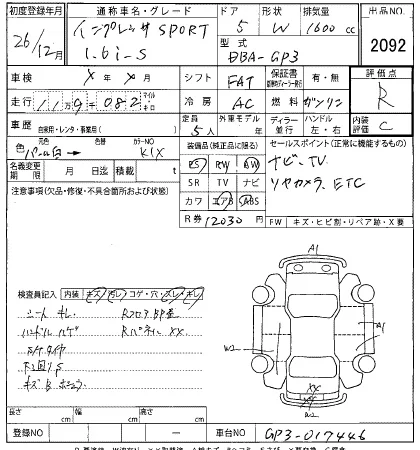 初度登録年月 通称車名・グレード ドア 形状 排気量 出品NO.
26/12月 インプレッサSPORT 1.6i-S 5 W 1600 cc
型式 DBA-GP3 2092
車検 X年X月 シフト FAT 保証書 有・無 評価点
走行 119,082 マイル キロ 冷房 AC 燃料 ガソリン R
車歴 自家用・レンタ・事業用( ) 定員 5人 外車モデル 年 ディーラー 並行 ハンドル 左・右 内装評価 C
色 元色 パール白→ 色替 カラーNO K1X 装備品(純正品に限る) セールスポイント(正常に機能するもの)
PS PW AW ナビ、TV
名義変更期限 月 日迄 積載 t SR TV ナビ リヤカメラ、ETC
注意事項(欠品・修復・不具合箇所および状態) カワ エアB ABS
R券 12030円 FW キズ・ヒビ割・リペア跡・X要
A1
検査員記入 内装 キズ・汚レ・コゲ・穴・スレ・キレ
シート キレ RフロアBP歪
ハンドル ハゲ XX A1
W2
下廻りS
XX
キズ
W2
長さ cm 幅 cm 高さ cm
登録NO 車台NO GP3-017446